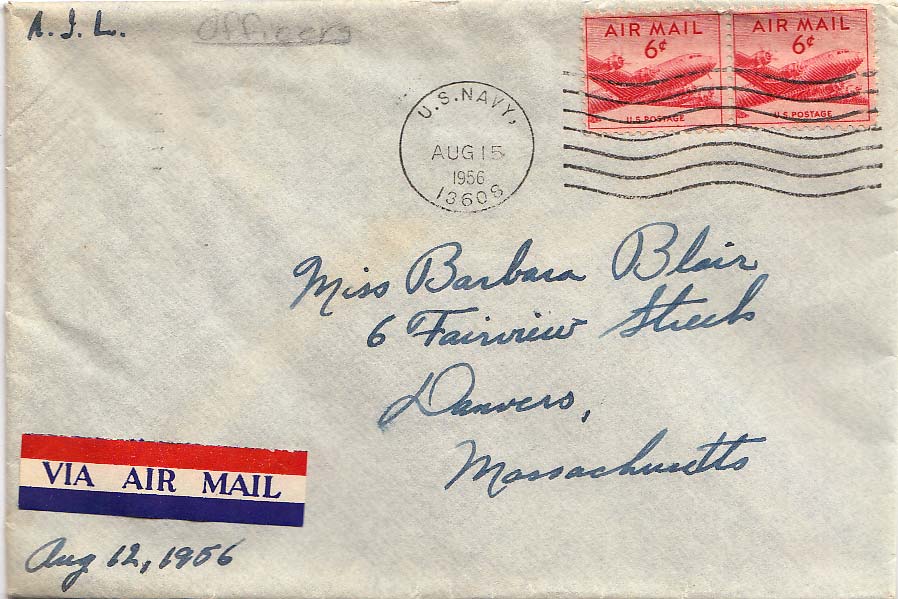 A.J.L.
Officers
AIR MAIL
6¢
U.S. POSTAGE
AIR MAIL
6¢
U.S. POSTAGE
U.S. NAVY,
AUG 15
1956
13608
Miss Barbara Blair
6 Fairview Street
Danvers,
Massachusetts
VIA AIR MAIL
Aug 12, 1956